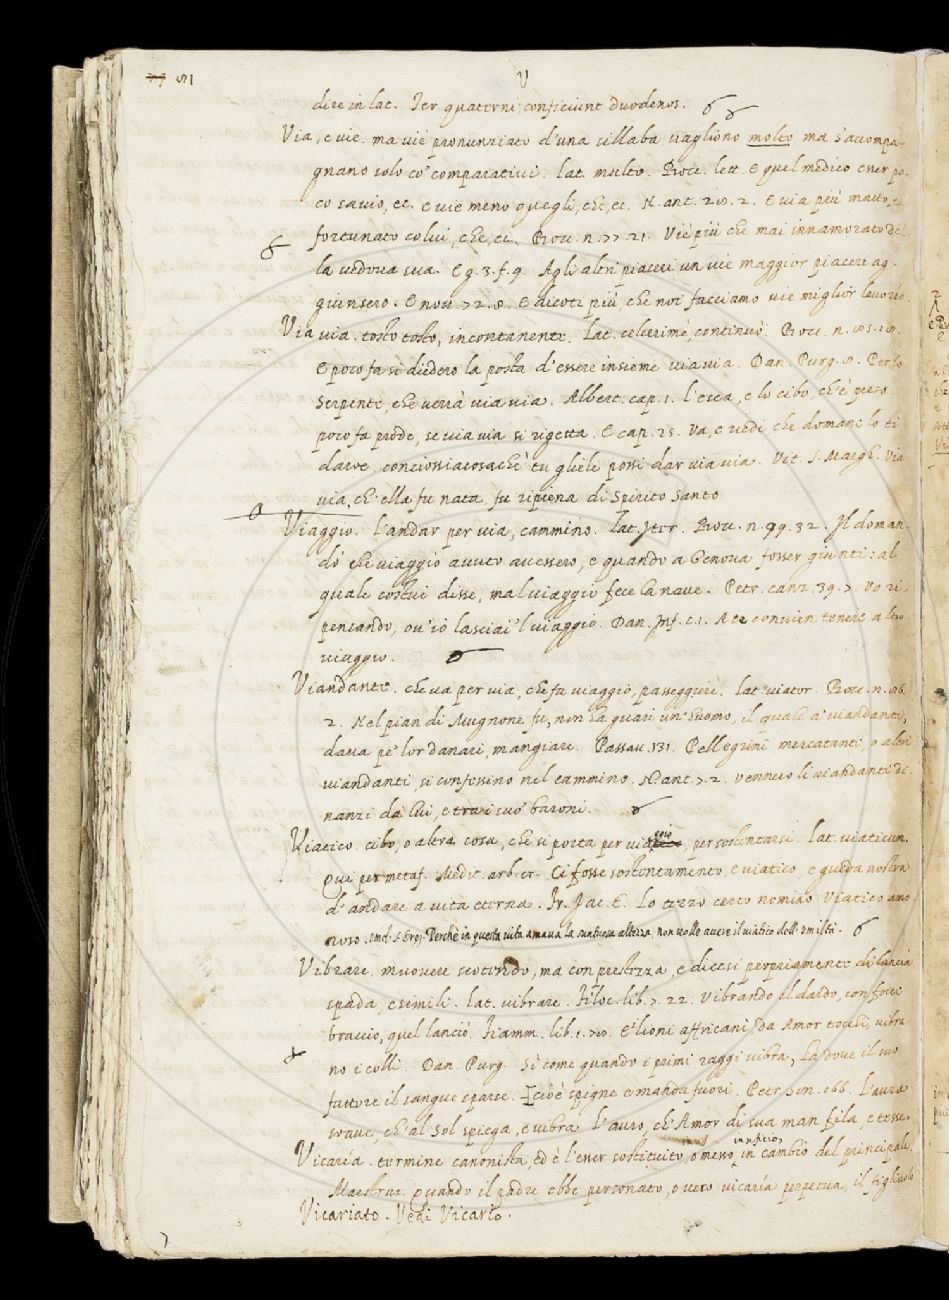 51
V
dire in lat. Ter quaterni conficiunt duodenos.
Via, e vie. ma vie pronunziato d'una sillaba vagliono molto ma s'accompa-
gnano solo co' comparativi. lat. multo. Bocc. lett. E quel medico esser po-
co savio, ec. e vie meno quegli, che, ec. N. ant. 2. E via più matto, e
fortunato colui, che, ec. Bocc. n. 77. 21. Vie più che mai innamorato del
la vedova sua. E g. 3. f. 9. Agli altri piaceri un vie maggior piacere ag-
giunsero. E nov. 72. 8. E dicoti più, che noi facciamo vie miglior lavorio.
Via via. tosto tosto, incontanente. Lat. celerrimè, continuò. Bocc. n.
E poco fa si diedero la posta d'essere insieme via via. Dan. Purg. 8. Per lo
serpente, che verrà via via. Albert. cap. 1. l'esca, e lo cibo, ch'è preso
poco fa prode, se via via si rigetta. E cap. 25. Va, e riedi che domane lo ti
darò, conciossiacosachè tu gliele possi dar via via. Vit. S. Margh. Via
via, ch'ella fu nata, fu ripiena di Spirito Santo
Viaggio. l'andar per via, cammino. Lat. Iter. Bocc. n. 99. 32. Il doman-
dò che viaggio avuto avessero, e quando a Genova fosser giunti: al
quale costui disse, mal viaggio fece la nave. Petr. canz. 39. 7. Vo ri-
pensando, ov'io lasciai 'l viaggio. Dan. Inf. c. 1. A te convien tenere altro
viaggio.
Viandante. che va per via, che fa viaggio, passeggiere. Lat. viator. Bocc. n.
2. Nel pian di Mugnone fu, non ha guari un'huomo, il quale a' viandanti,
dava pe' lor danari, mangiare. Passav. 131. Pellegrini mercatanti, o altri
viandanti, si confessino nel cammino. N. ant. 7. 2. Vennero li viandanti di-
nanzi da lui, e tra i suo' baroni.
Viatico. cibo, o altra cosa, che si porta per viaggio, per sostentarsi. lat. viaticum.
Qui per metaf. Medit. arb. cr. Ci fosse sostentamento, e viatico, e guida nostra
d'andare a vita eterna. Fr. Jac. T. Lo terzo certo nomino Viatico amo-
roso. Omel. S. Greg. Perchè in questa vita amava la suntuosa altezza, non volle avere il viatico dell'umiltà.
Vibrare. muovere scotendo, ma con prestezza, e dicesi propriamente di lancia
spada, e simili. lat. vibrare. Filoc. lib. 7. 22. Vibrando il dardo, con forte
braccio, quel lanciò. Fiamm. lib. 1. E lioni affricani, da Amor tocchi, vibra-
no i colli. Dan. Purg. Sì come quando i primi raggi vibra, Là dove il suo
fattore il sangue sparse. [cioè spigne e manda fuori. Petr. Son. 166. L'aura
soave, ch'al Sol spiega, e vibra L'auro, ch'Amor di sua man fila, e tesse.
in uficio,
Vicaría. termine canonista, ed è l'esser sostituito, o messo in cambio del principale.
Maestruz. Quando il padre ebbe personato, o vero vicaría perpetua, il figliuolo
Vicariato. Vedi Vicario.